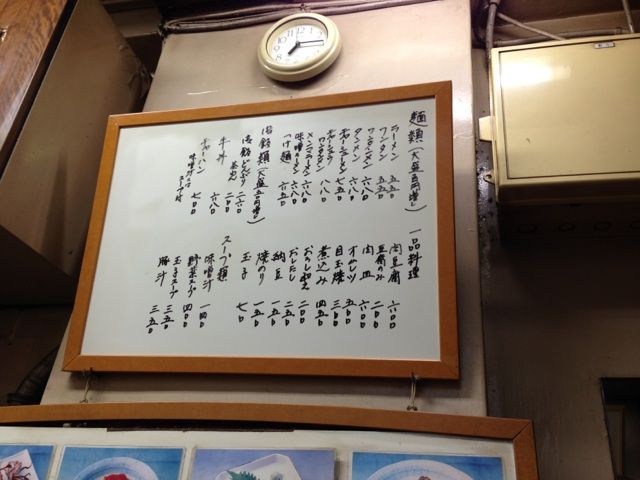 麺類(大盛百円増し)
ラーメン 五五〇
ワンタン 五五〇
ワンタンメン 六八〇
タンメン 六八〇
チャーシューメン 七五〇
チャーシュウワンタンメン 八八〇
メンマラーメン 六八〇
味噌ラーメン 六八〇
つけ麺 六五〇
御飯類(大盛五十円増し)
御飯 どんぶり 二六〇
茶碗 二〇〇
牛丼 六八〇
チャーハン 七〇〇
スープ付
一品料理
肉豆腐 六〇〇
豆腐のみ 二〇〇
肉皿 六〇〇
オムレツ 五五〇
目玉焼 三〇〇
煮込み 四五〇
おしたし 二五〇
納豆 一五〇
焼のり 一五〇
玉子 七〇
スープ類
味噌汁 一四〇
野菜スープ 四〇〇
玉子スープ 三五〇
豚汁 三五〇